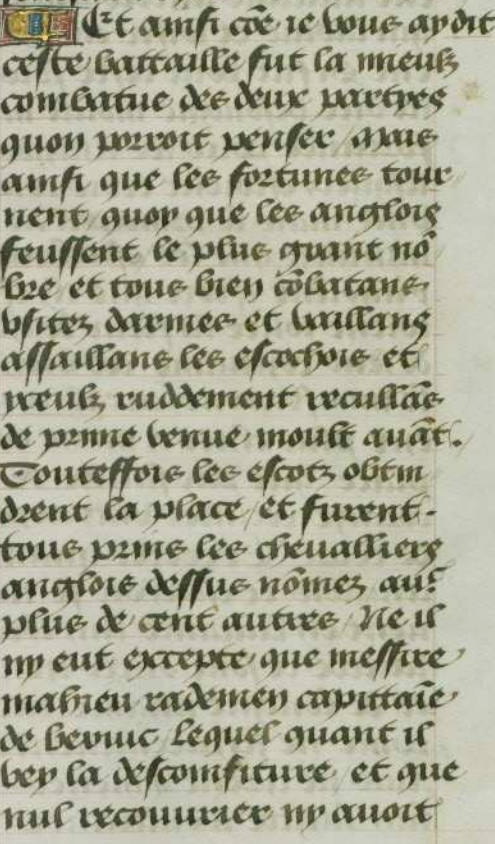 Et ainsi cõe ie vous ay dit
ceste battaille fut la mieulz
combatue des deux partyes
quon porroit penser / Mais
ainsi que les fortunes tour
nent quoy que les anglois
feussent le plus grant nõ
bre et tous bien cõbatans
vsitez darmes et vaillans
assaillans les escochois et
yceulz ruddement recullãs
de prime venue moult auãt.
Touteffois les escotz obtin
drent la place / et furent
tous prins les cheualliers
anglois dessus nõmez au
plus de cent autres / Ne il
ny eut excepte que messire
mahieu rademen capittaĩe
de bevuic Lequel quant il
vey la descomfiture et que
nul recouurier ny auoit